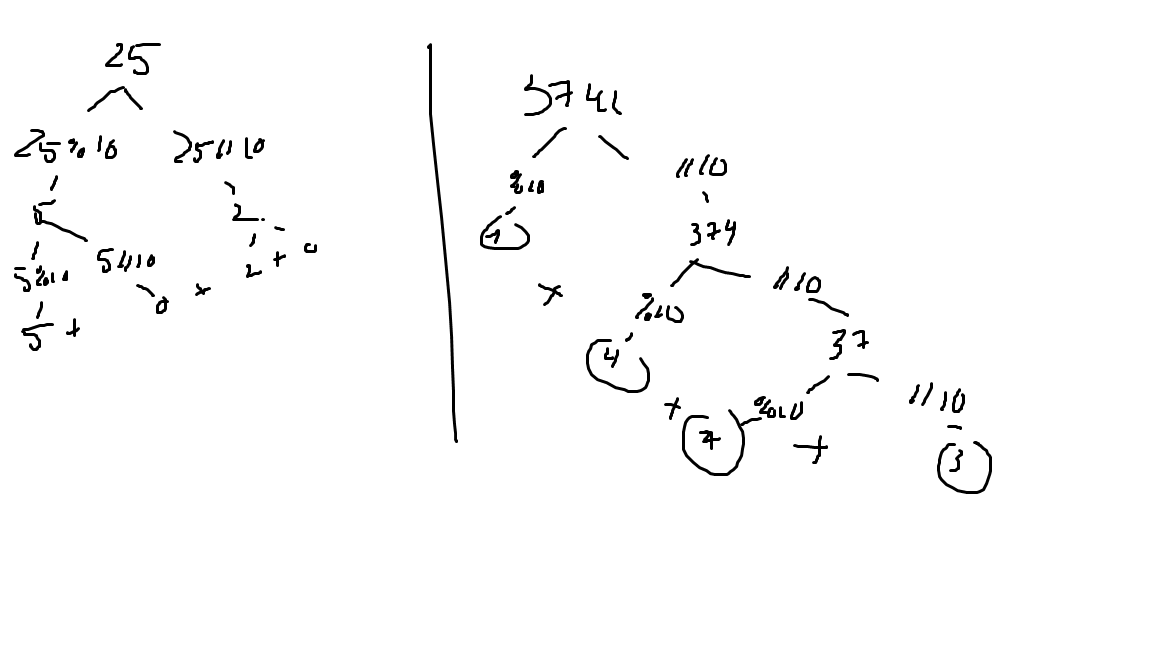 25
25%10 25//10
5 2
5%10 5//10 2 + 0
5 + 0 +
3741
%10 //10
1 374
+ %10 //10
4 37
+ %10 //10
7 + 3